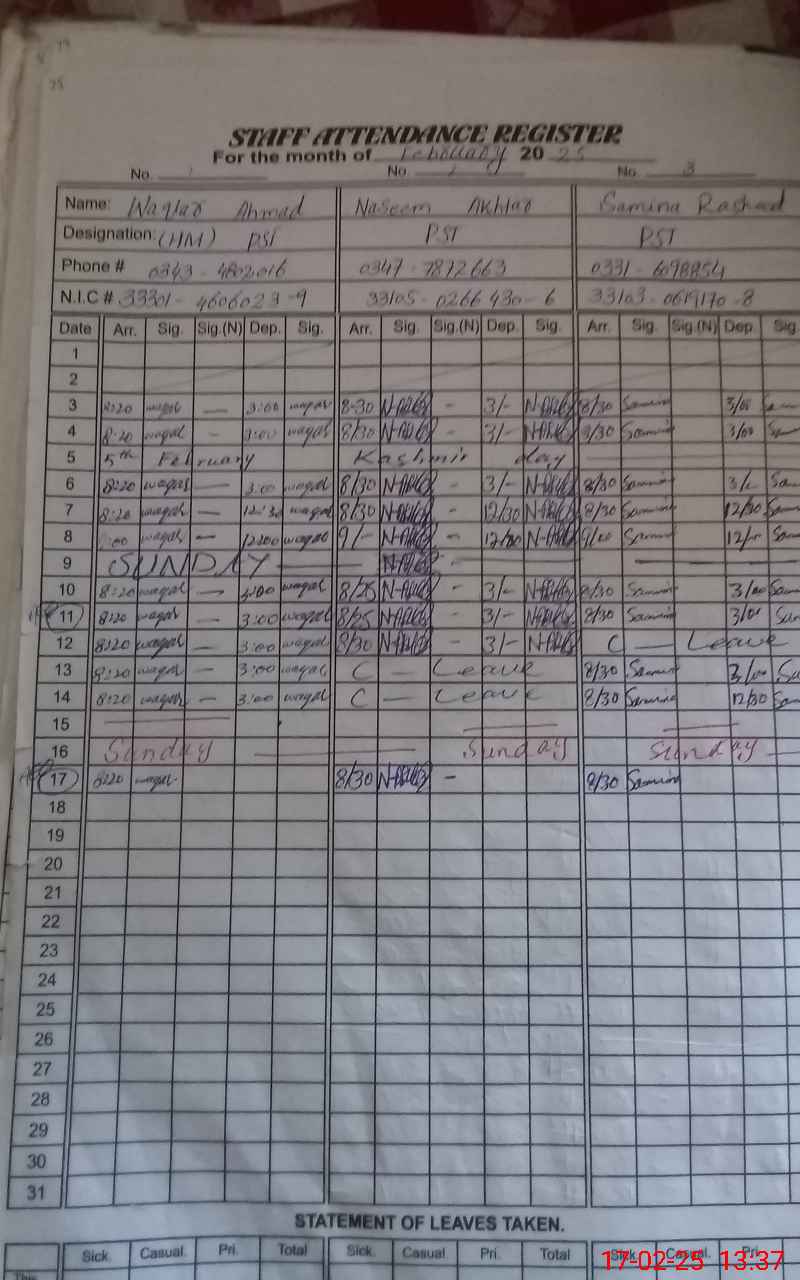 STAFF ATTENDANCE REGISTER
For the month of February 20 25
No. 1 No. 2 No. 3
Name: Waqar Ahmad Naseem Akhtar Samina Rashed
Designation: (HM) PST PST PST
Phone # 0343-4802016 0347-7872663 0331-6098854
N.I.C # 33301-4606023-9 33105-0266430-6 33103-0619170-8
Date Arr. Sig. Sig.(N) Dep. Sig. Arr. Sig. Sig.(N) Dep. Sig. Arr. Sig. Sig.(N) Dep. Sig
1
2
3 8:20 waqar — 3:00 waqar 8-30 - 3/- 8/30 Samina 3/00
4 8:20 waqar - 3:00 waqar 8/30 - 3/- 8/30 Samina 3/00
5 5th February Kashmir day
6 8:20 waqar — 3:00 waqar 8/30 - 3/- 8/30 Samina
7 8:20 waqar — 12:30 waqar 8/30 - 12/30 8/30 Samina 12/30
8 waqar — 12:00 waqar 9/- - 9/00 Samina
9 SUNDAY
10 8:20 waqar — 3:00 waqar 8/25 - 3/- 8/30 Samina 3/00
11 8:20 waqar — 3:00 waqar 8/25 - 3/- 8/30 Samina 3/00
12 8:20 waqar — 3:00 waqar 8/30 - 3/- C — Leave
13 8:20 waqar — 3:00 waqar C — Leave 8/30 Samina 3/00
14 8:20 waqar — 3:00 waqar C — Leave 8/30 Samina 12/30
15
16 Sunday Sunday Sunday
17 8:20 waqar 8/30 - 8/30 Samina
18
19
20
21
22
23
24
25
26
27
28
29
30
31
STATEMENT OF LEAVES TAKEN.
Sick. Casual. Pri. Total Sick. Casual. Pri. Total Sick. Casual. Pri.
17-02-25 13:37